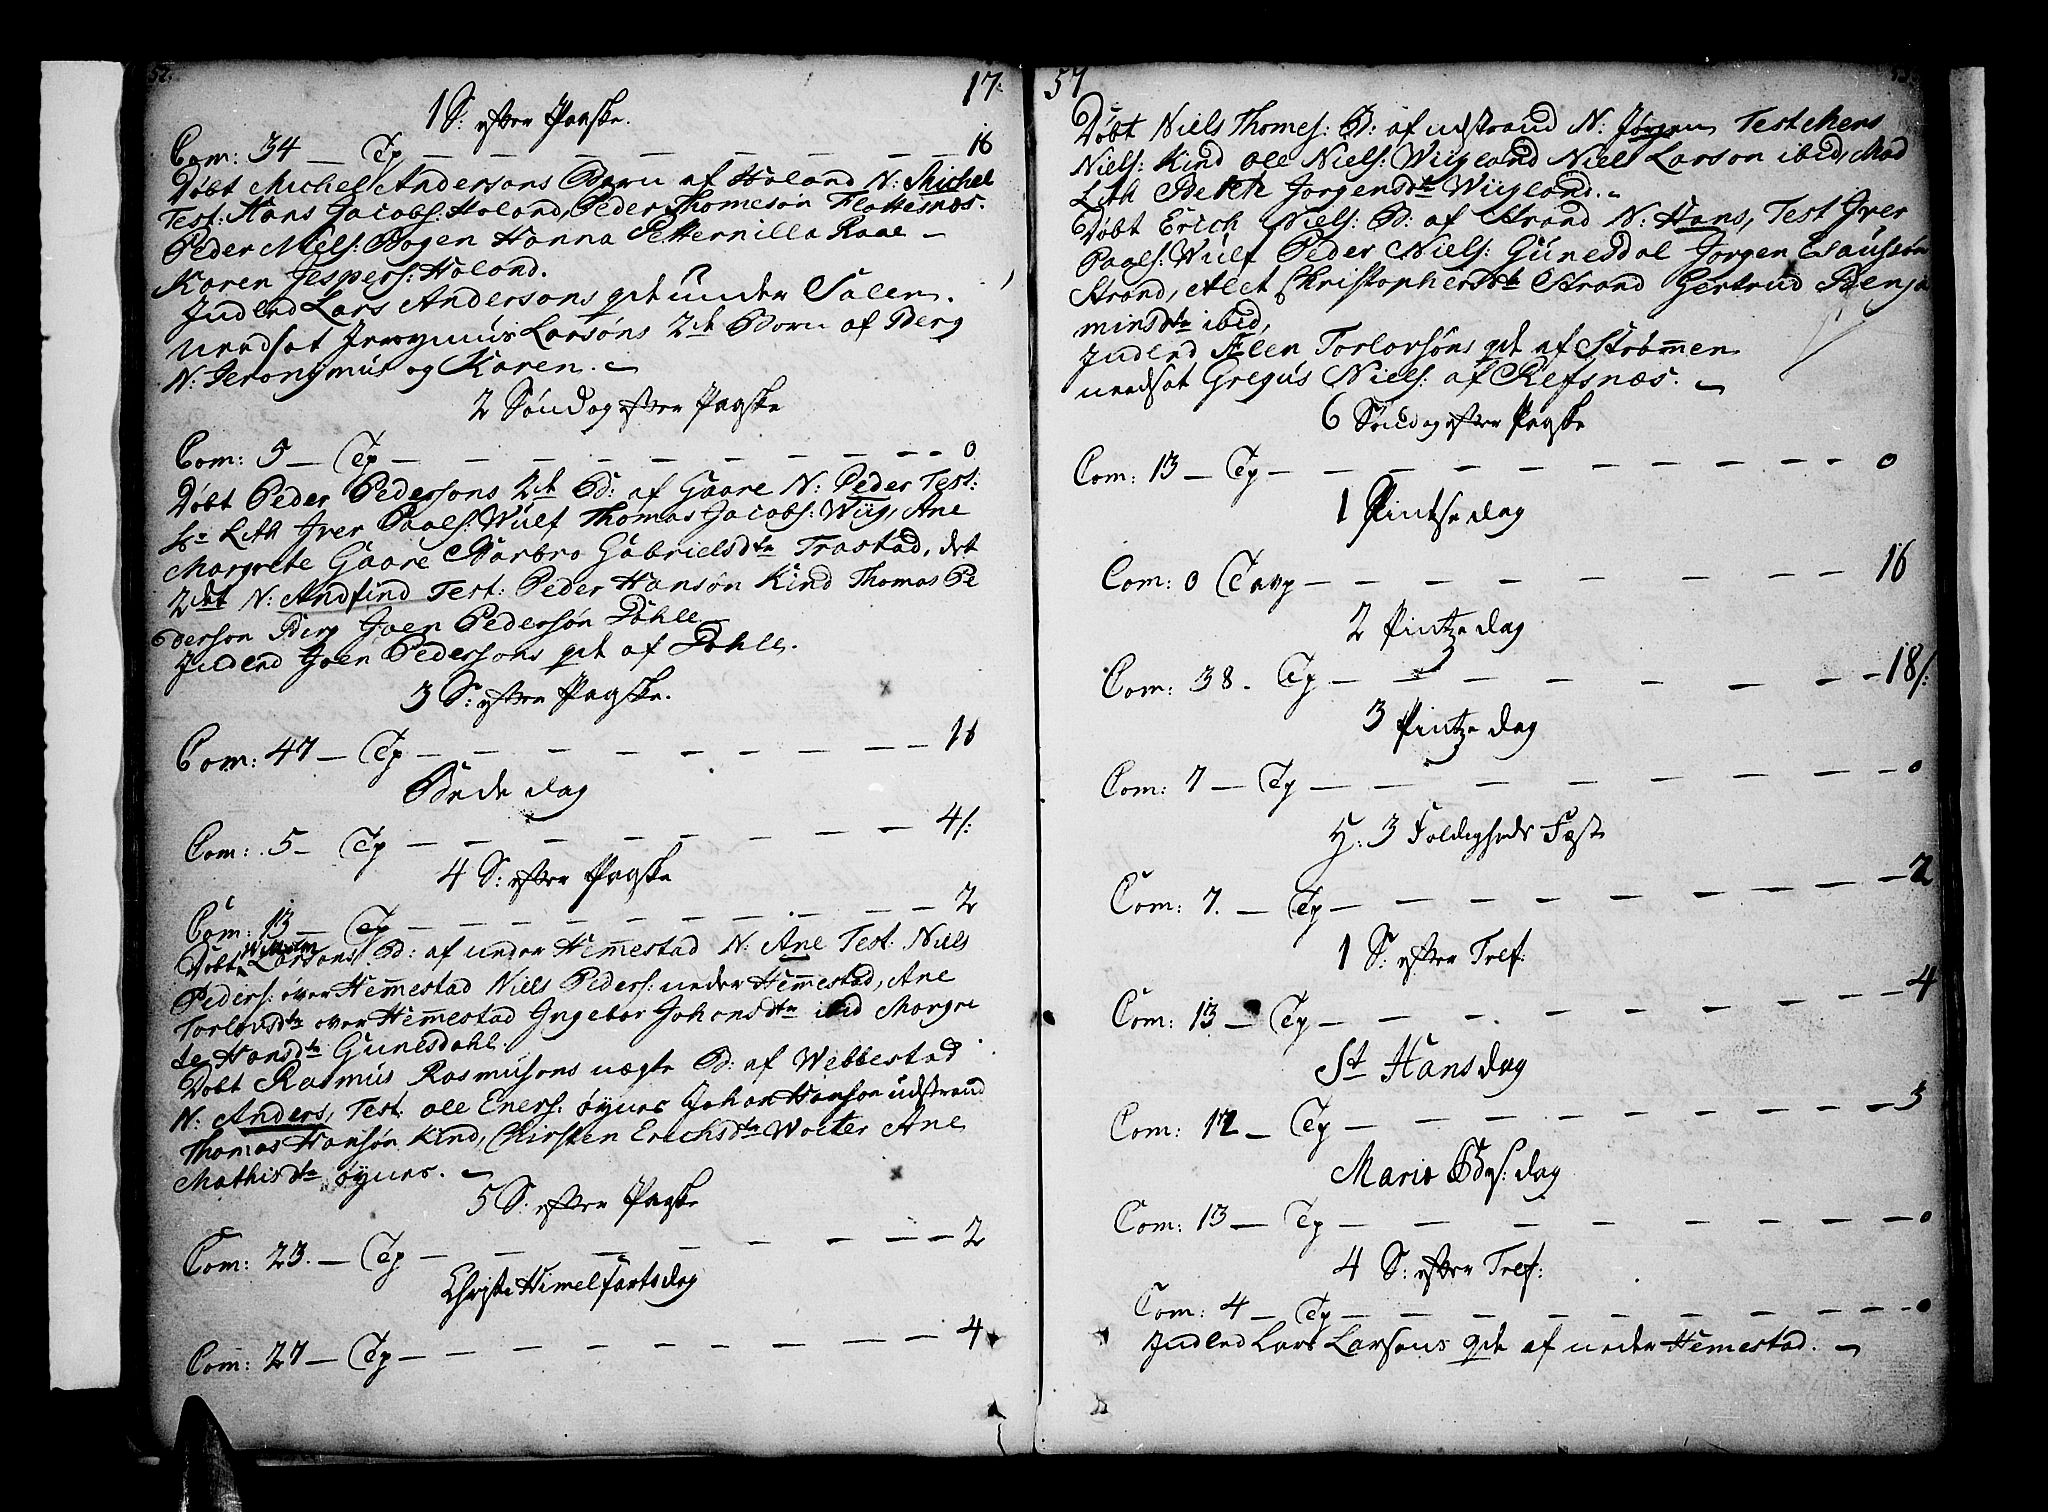 52.
17.
1 S: efter Paaske.
Com: 34 — Tep — — — — — — 16
Døbt Michel Andersøns Barn af Holand N: Michel
Test: Hans Jacobs: Holand, Peder Thomesøn Flottesnæs.
Peder Niels: Bogen Hanna Petternilla Raae —
Karen Jespers: Holand.
Indled Lars Andersøns qde under Salen.
uredsat Jeronymus Larsøns 2de Børn af Berg
N: Jeronymus og Karen. —
2 Søndag efter Paaske
Com: 5 — Tep — — — — — — 0
Døbt Peder Pedersøns 2de B: af Gaare N: Peder Test:
Sr Lith Iver Paals: Wulf Thomas Jacobs: Wiig, Ane
Margrete Gaare Barbro Gabrielsdtr Trastad, det
2det N: Andfind Test: Peder Hansøn Kind Thomas Pe
dersøn Berg Joen Pedersøn Dahle
Indlend Joen Pedersøns qde af Dahle.
3 S: efter Paaske.
Com: 47 — Tep — — — — — — 16
Bede dag
Com: 5 — Tep — — — — — — 4/:
4 S: efter Paaske
Com: 13 — Tep — — — — — — 2
Døbt Willum Larsøns B: af under Hemmestad N: Ane Test: Niels
Peders: over Hemmestad Niels Peders: under Hemmestad, Ane
Torlovsdtr over Hemmestad Ingebor Johansdtr ibid Margre
te Hansdtr Gunesdahl.
Døbt Rasmus Rasmusøns uægte B: af Webbestad
N: Anders, Test: Ole Eners: øynes Johan Hansøn udstrand
Thomas Hansøn Kind, Chirsten Erichsdtr Wolter Ane
Mathisdtr øynes. —
5 S: efter Paaske
Com: 23. — Tep — — — — — — 2
Christi Himelfartsdag
Com: 27 — Tep — — — — — — 4
57
Døbt Niels Thomes: B: af udstrand N: Jørgen Test Mens
Niels: Kind Ole Niels: Wiigland Niels Larsøn ibid, Mad
Lith Berth Jørgensdtr Wiigland.
Døbt Erich Niels: B: af Strand N: Hans, Test Iver
Paals: Wulf Peder Niels: Gunesdal Jørgen Esausøn
Strand, Alet Christophersdtr Strand Gertrud Benja
minsdtr ibid,
Indlend Elen Torlovsøns qde af Støbmen
uredsat Gregus Niels: af Refsnæs. —
6 Søndag efter Paaske
Com: 13 — Tep — — — — — — 0
1 Pintse dag
Com: 0 Tavp — — — — — — 16
2 Pintze dag
Com: 38. Tep — — — — — — 18/:
3 Pintze dag
Com: 7 — Tep — — — — — — 0
H: 3 Foldigheds Fæst
Com: 7. — Tep — — — — — — 2
1 S: efter Tref:
Com: 13 — Tep — — — — — — 4
St Hans dag
Com: 12 — Tep — — — — — — 3
Mariæ Bds: dag
Com: 13 — Tep — — — — — — 0
4 S: efter Tref:
Com: 4 — Tep — — — — — — 0
Indlend Lars Larsøns qde af under Hemestad. —